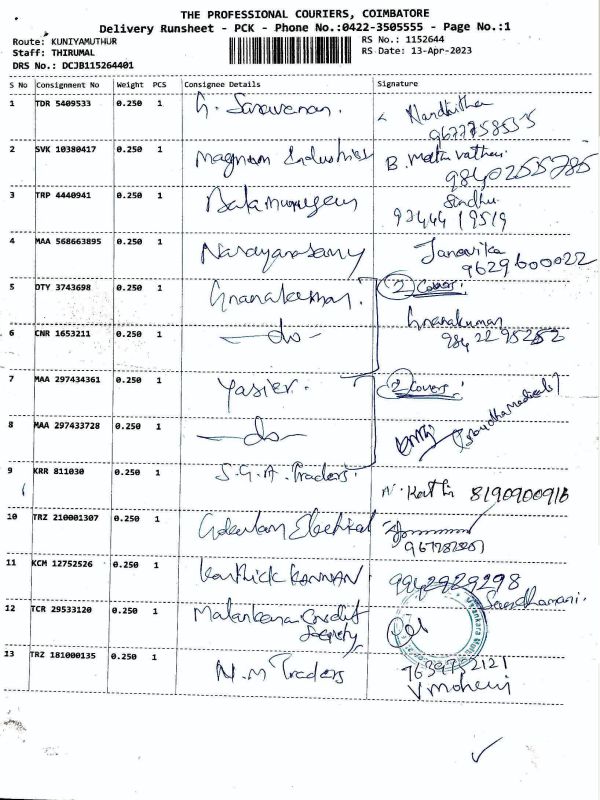 THE PROFESSIONAL COURIERS, COIMBATORE
Delivery Runsheet - PCK - Phone No.:0422-3505555 - Page No.:1
Route: KUNIYAMUTHUR
RS No.: 1152644
Staff: THIRUMAL
RS Date: 13-Apr-2023
DRS No.: DCJB115264401
S No Consignment No Weight PCS Consignee Details Signature
1 TDR 5409533 0.250 1 G. Saravanan. Nandhitha
9677758535
2 SVK 10380417 0.250 1 Magnum Industries B.
9840255785
3 TRP 4440941 0.250 1 Balamurugan Sindhu
9344419519
4 MAA 568663895 0.250 1 Narayanasamy Janavika
9629600022
5 OTY 3743698 0.250 1 Gnanakumar. 2 Covers.
Gnanakumar
6 CNR 1653211 0.250 1 -do- 984 22 95252
7 MAA 297434361 0.250 1 Yasier. 2 Covers.
8 MAA 297433728 0.250 1 -do-
9 KRR 811030 0.250 1 S.G.A. Traders. 8190900916
10 TRZ 210001307 0.250 1 Electrical
11 KCM 12752526 0.250 1 Karthick KANNAN. 9942929298
Sandhamani.
12 TCR 29533120 0.250 1 Malankara Credit
Society
13 TRZ 181000135 0.250 1 N.M Traders 7639752121
V